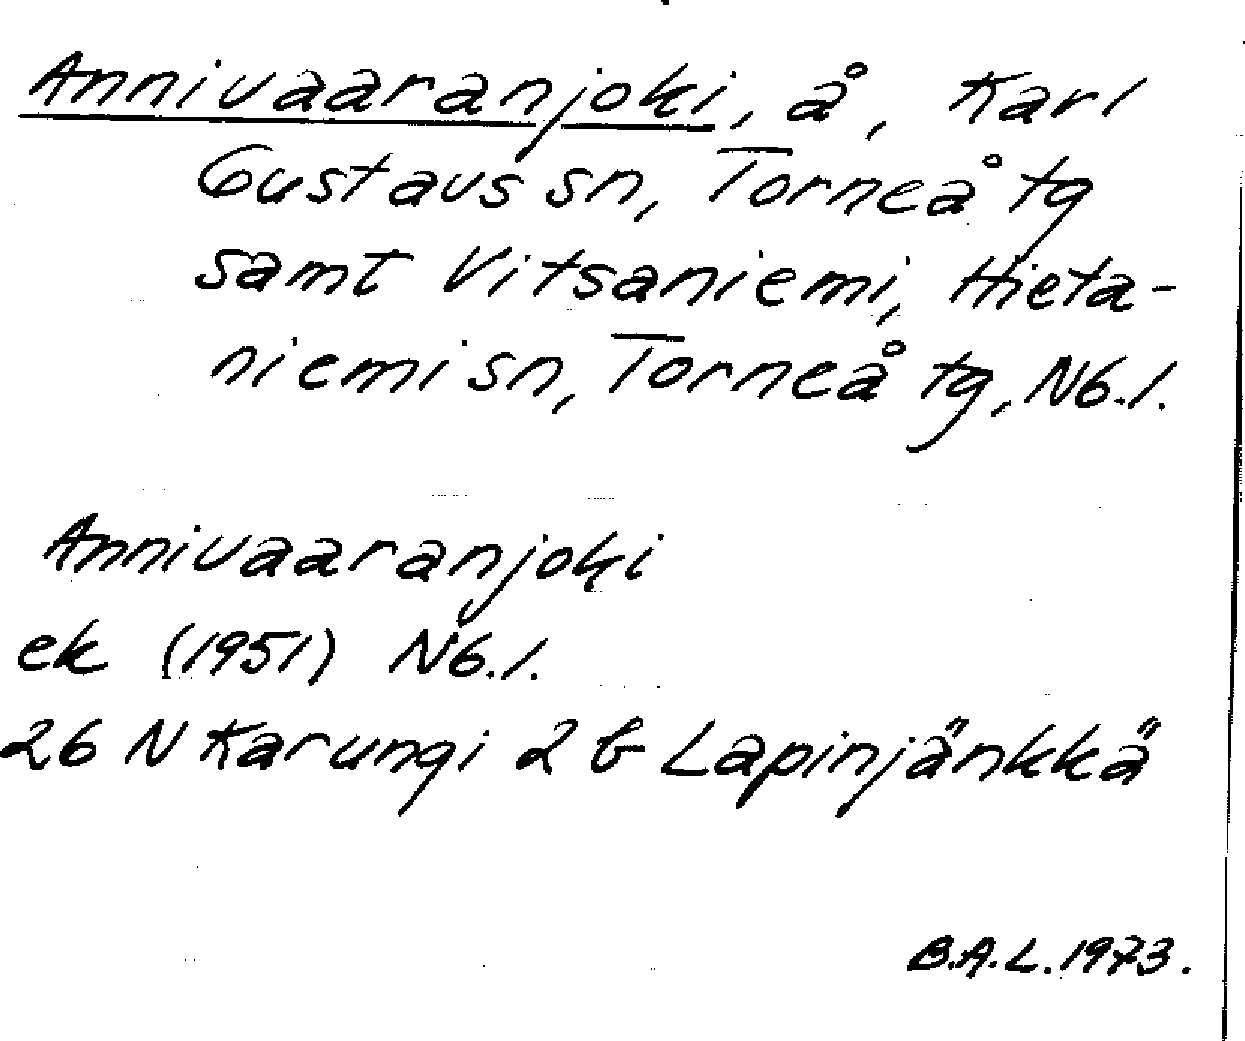 Annivaaranjoki, å, Karl
Gustavs sn, Torneå tg
samt Vitsaniemi, Hieta-
niemi sn, Torneå tg, Nb.l.
Annivaaranjoki
ek (1951) Nb.l.
26 N Karungi 2 b Lapinjänkkä
B.A.L. 1973.